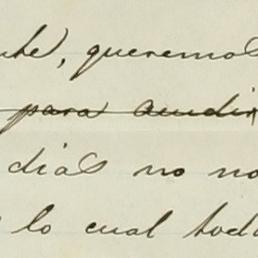 nte, queremos
para acudir
dias no no
lo cual toda